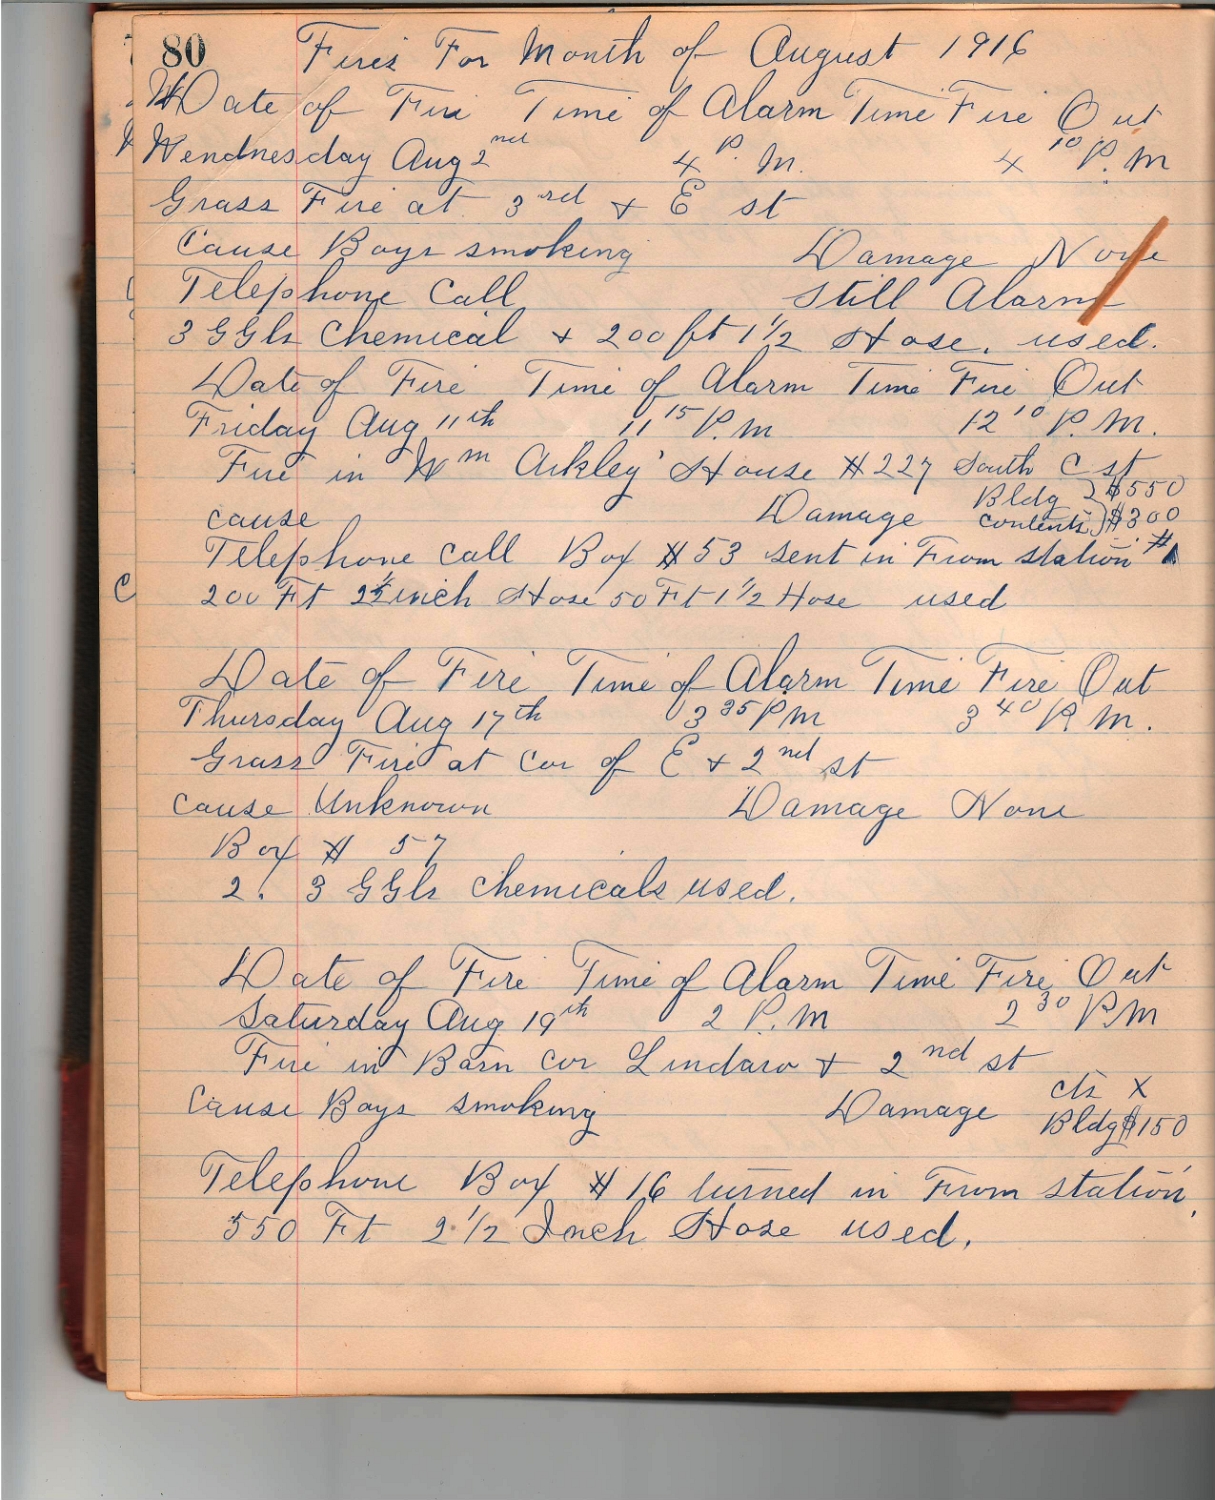 80 Fires For Month of August 1916
Date of Fire Time of Alarm Time Fire Out
Wendnesday Aug 2nd 4 P. M. 4 10 P. M
Grass Fire at 3rd + E st
Cause Boys smoking Damage None
Telephone Call Still Alarm
3 GGls Chemical + 200 ft 1 1/2 Hose. used.
Date of Fire Time of Alarm Time Fire Out
Friday Aug 11th 11 15 P. M 12 10 P. M.
Fire in Wm Ackley' House # 227 South C st
Bldg $550
cause Damage contents $300
Telephone call Box # 53 sent in From station #1
C 200 Ft 2 1/2 inch Hose 50 Ft 1 1/2 Hose used
Date of Fire Time of Alarm Time Fire Out
Thursday Aug 17th 3 35 P M 3 40 P. M.
Grass Fire at Cor of E + 2nd st
Cause Unknown Damage None
Box # 57
2. 3 GGls Chemicals used.
Date of Fire Time of Alarm Time Fire Out
Saturday Aug 19th 2 P. M 2 30 P. M
Fire in Barn Cor Lindaro + 2nd st
cts X
Cause Boys smoking Damage
Bldg $150
Telephone Box # 16 turned in From station,
550 Ft 2 1/2 Inch Hose used.